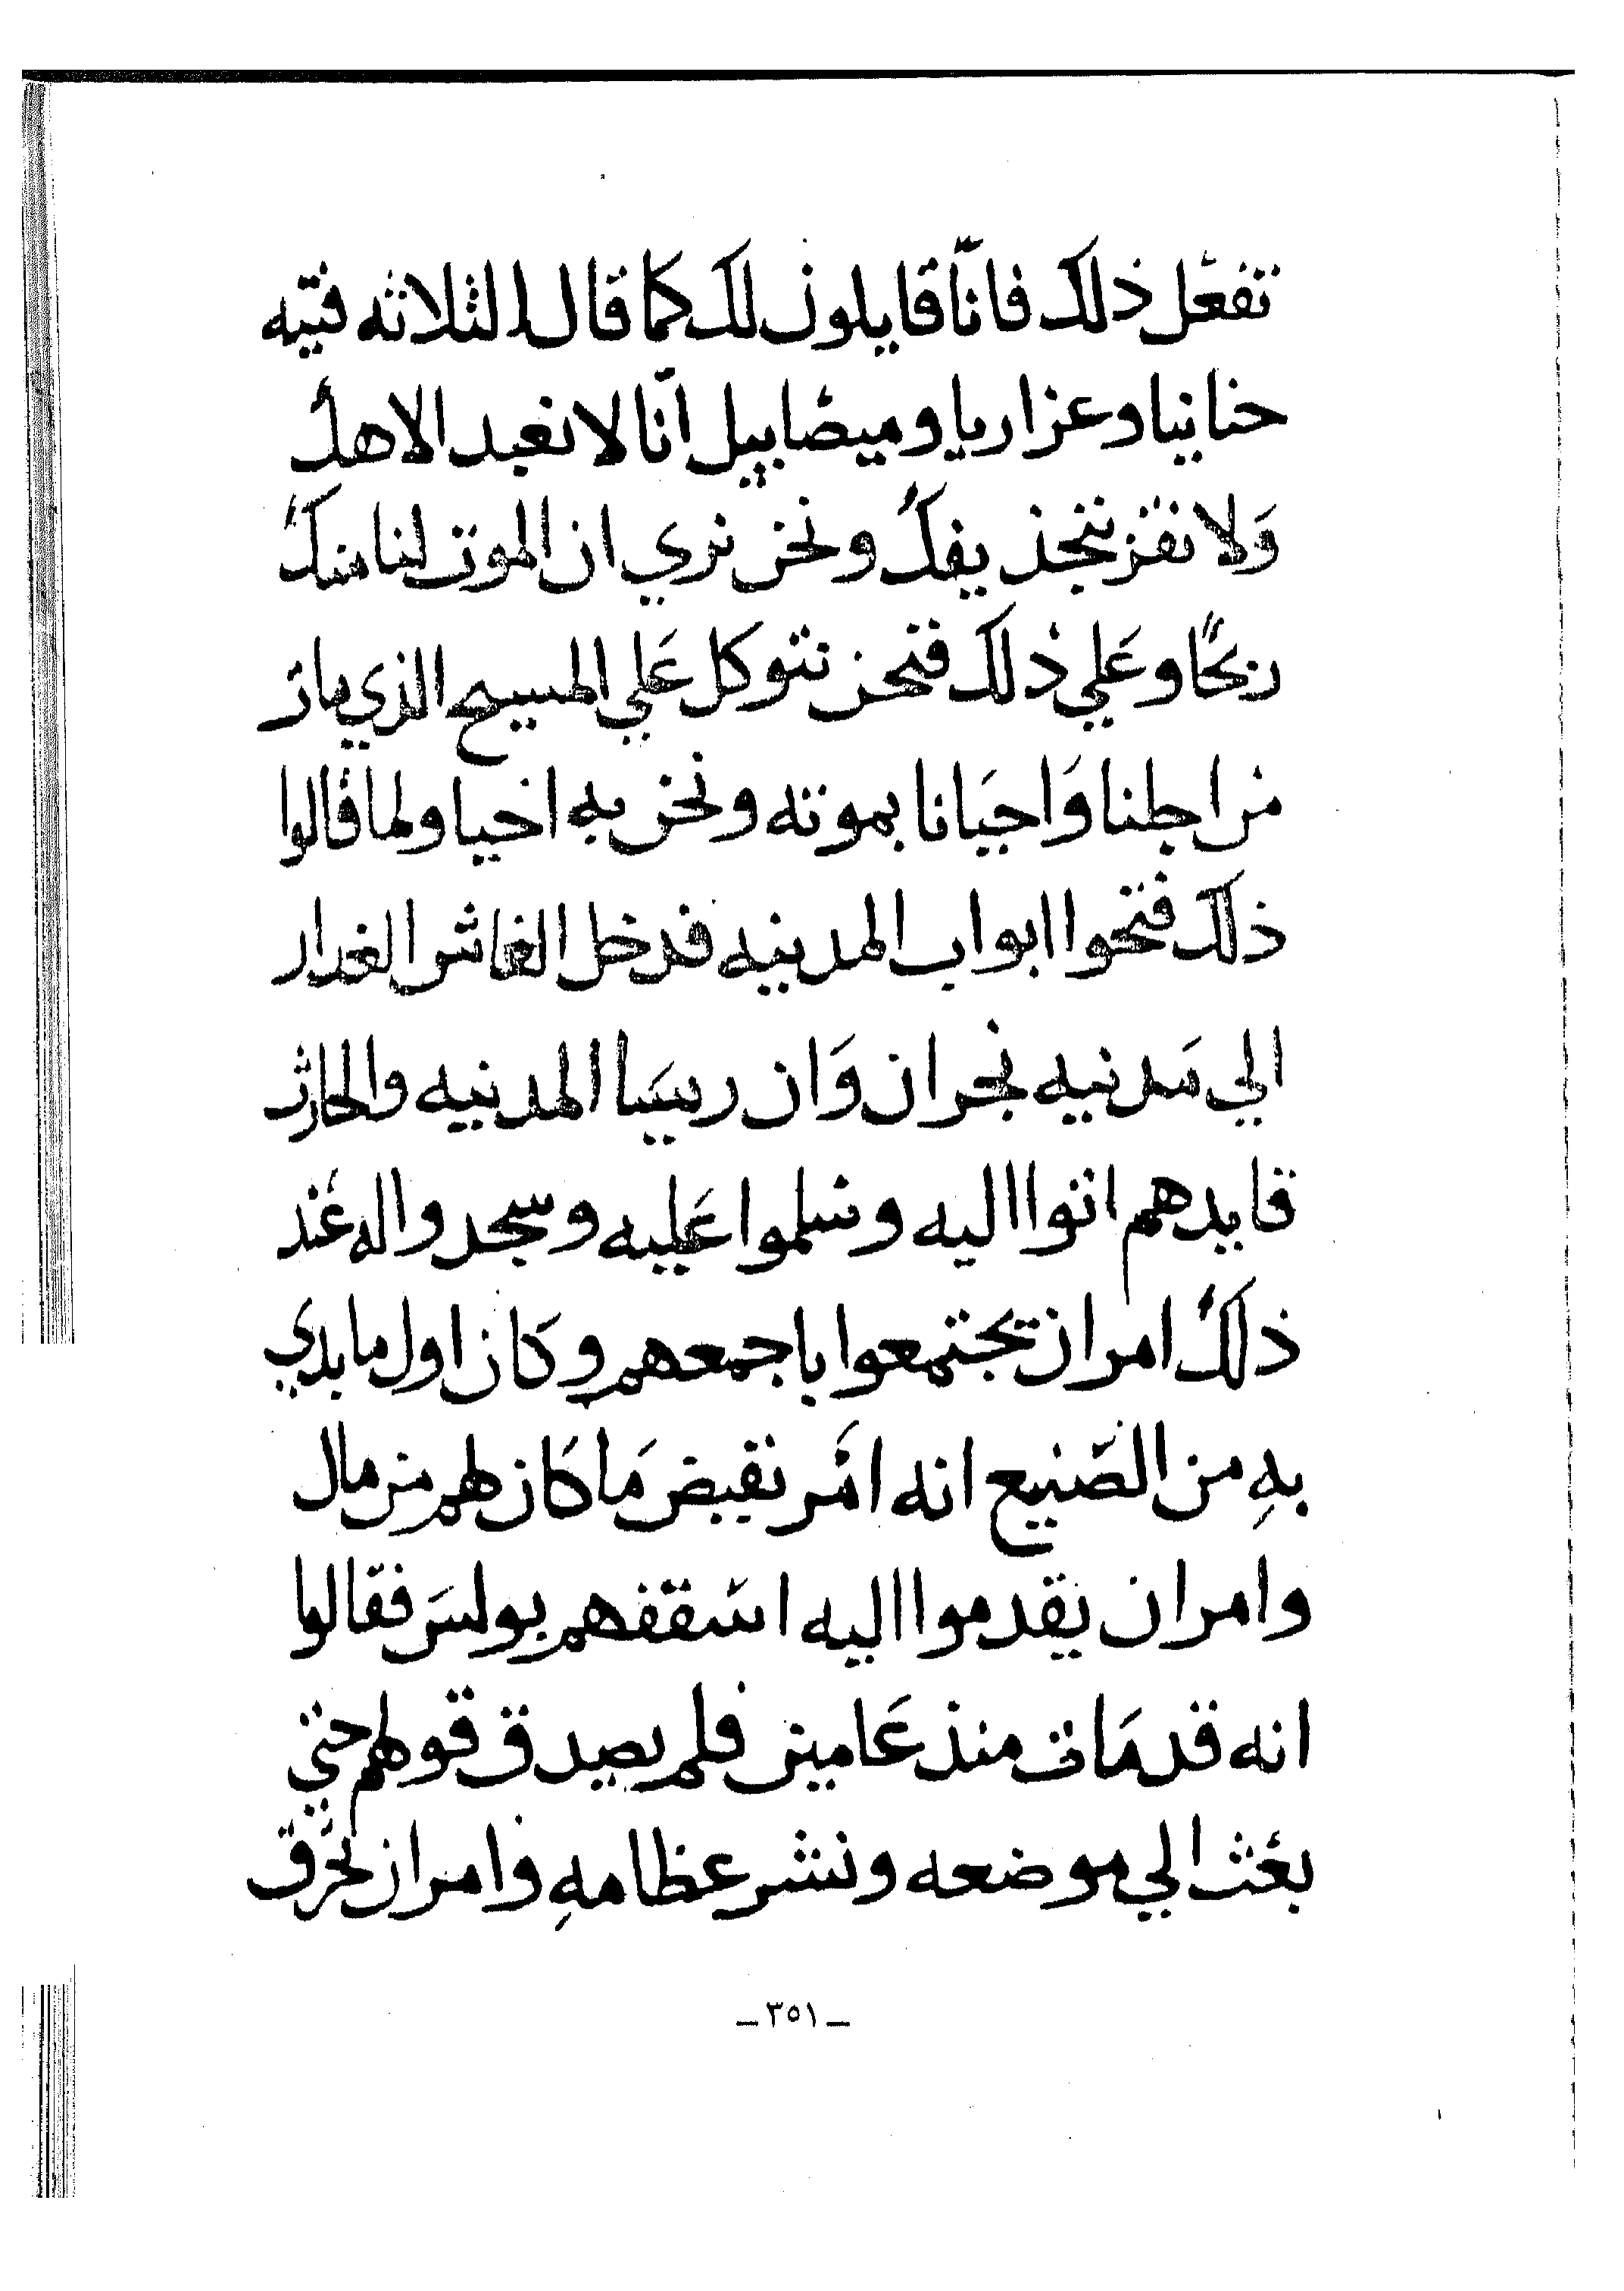 تفعل ذلك فانّا قايلون لك كما قال الثلاثه فتيه
حنانيا وعزاريا وميصاييل انّا لا نعبد الاهك
ولا نقز نتجذيفك ونحن نري ان الموت لنا منك
ربحًا وعَلي ذلك فنحن نتوكل عَلي المسيح الذي مات
من اجلنا وَاحيَانا بموته ونحن به احيا ولما قالوا
ذلك فتحوا ابواب المدينيه فدخل الغاش الغدار
الي مَدينيه نجران وَان ريسَا المدينيه والحارث
قايدهم اتوا اليه وسلموا عَليه وسجدوا له عند
ذلك امر ان يجتمعوا باجمعهم وكان اول ما بدي
بهِ من الصّنيع انه امَر بقبض مَا كان لهم من مال
وامر ان يقدموا اليه اسقفهم بولسَ فقالوا
انه قد مَات منذ عَامين فلم يصدق قولهم حتي
بعث الي موضعه ونشر عظامهِ وامر ان تحرق
_ ٣٥١ _